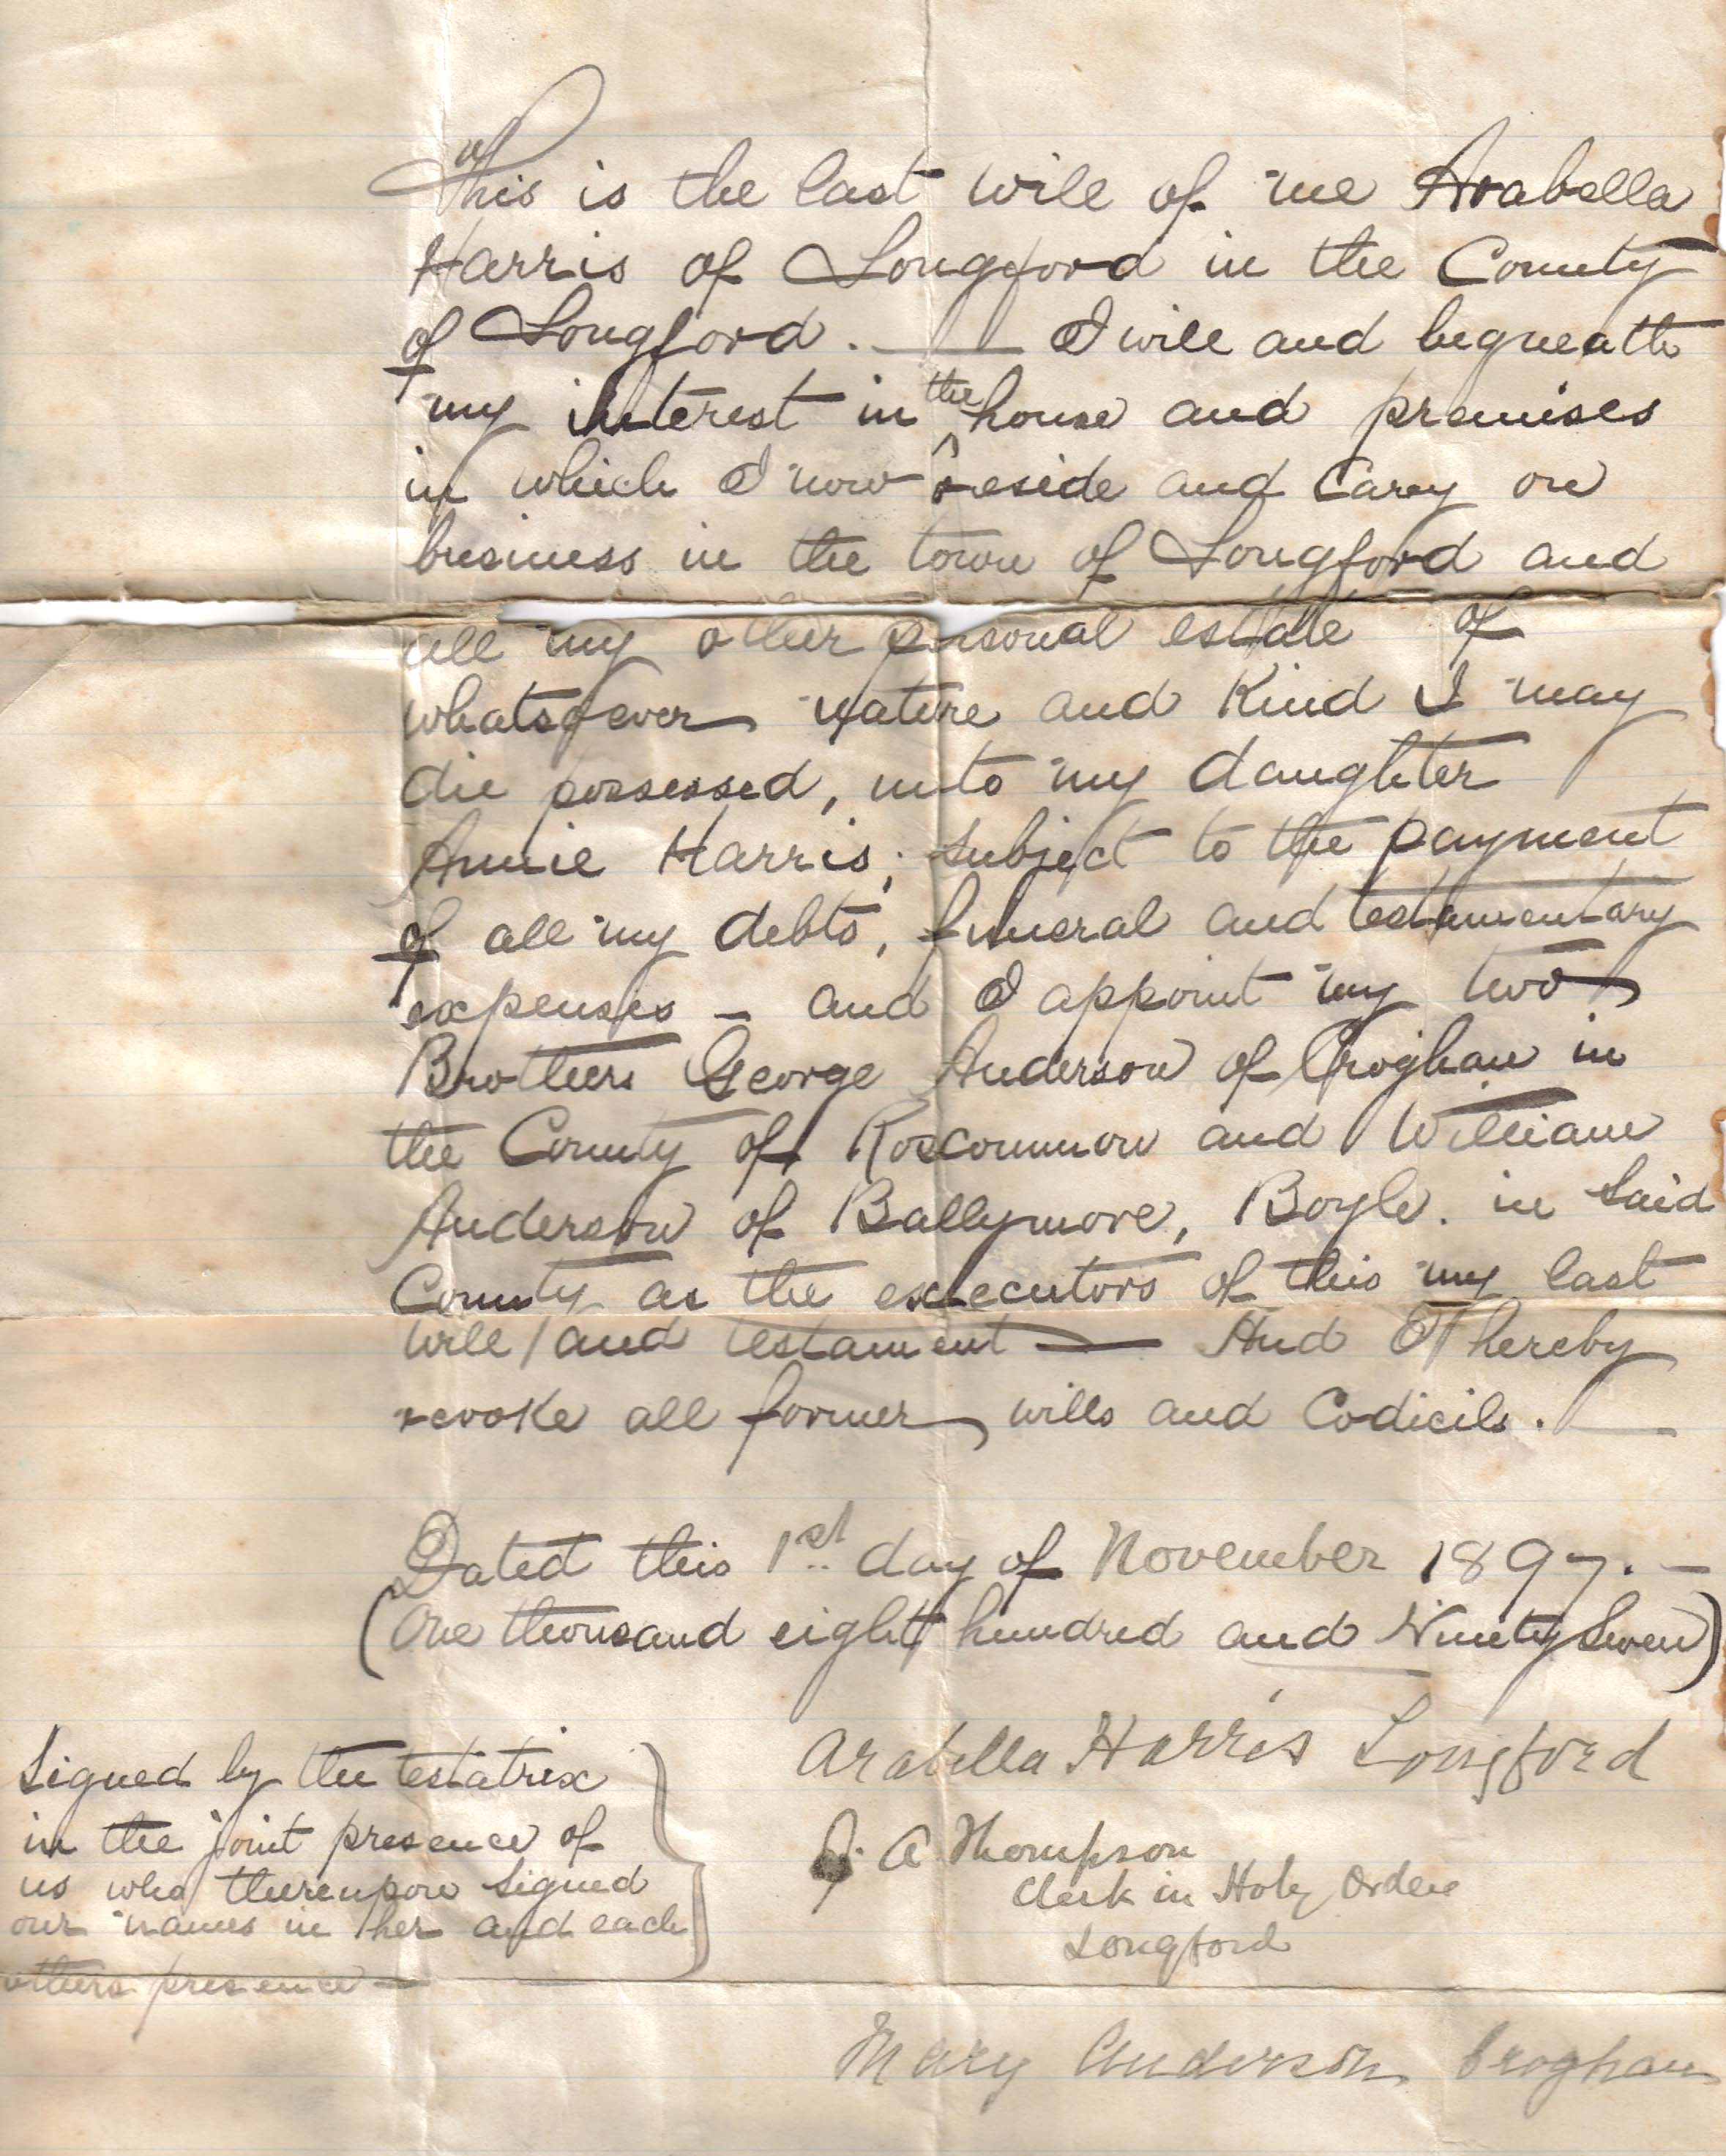 This is the last will of me Arabella
Harris of Longford in the County
of Longford. — I will and bequeath
my interest in the house and premises
in which I now reside and Carry on
business in the town of Longford and
all my other personal estate of
whatsoever nature and Kind I may
die possessed, unto my daughter
Annie Harris, subject to the payment
of all my debts, funeral and testamentary
expenses – and I appoint my two
Brothers George Anderson of Croghan in
the County of Roscommon and William
Anderson of Ballymore, Boyle. in said
County as the executors of this my last
will and testament — And I hereby
revoke all former wills and Codicils. —
Dated this 1st day of November 1897. –
(One thousand eight hundred and Ninety Seven)
Arabella Harris Longford
Signed by the testatrix
in the joint presence of
us who thereupon signed
our names in her and each
others presence –
J. A Thompson
Clerk in Holy Orders
Longford
Mary Anderson Croghan